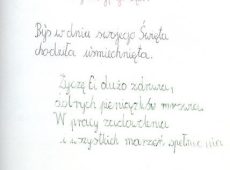 Byś w dniu swojego Święta
chodziła uśmiechnięta.
Życzę Ci dużo zdrowia,
dobrych pieniążków mrowia.
W pracy zadowolenia
i wszystkich marzeń spełnienia